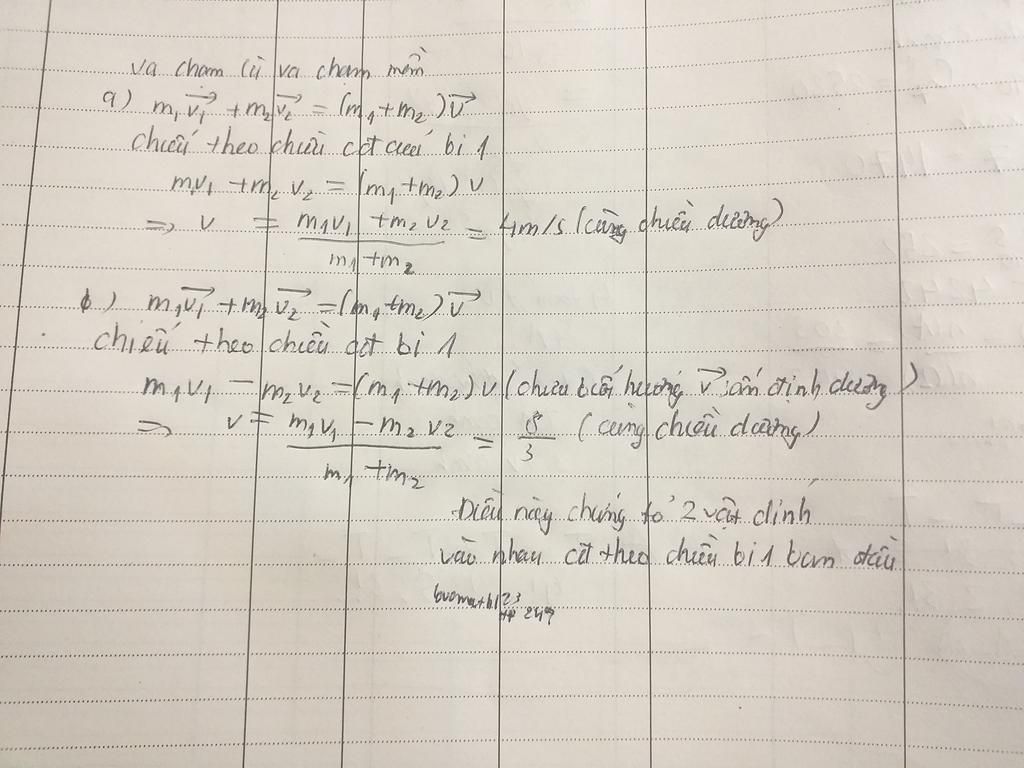 va chạm là va chạm mềm
a) m₁v₁→ + m₂v₂→ = (m₁+m₂)v→
chiếu theo chiều cđ của bi 1
m₁v₁ + m₂ v₂ = (m₁+m₂) v
=> v = (m₁v₁ + m₂v₂)/(m₁+m₂) = 4m/s (cùng chiều dương)
b) m₁v₁→ + m₂v₂→ = (m₁+m₂)v→
chiếu theo chiều cđ bi 1
m₁v₁ - m₂v₂ = (m₁+m₂) v (chưa biết hướng v→ định dương)
=> v = (m₁v₁ - m₂v₂)/(m₁+m₂) = 8/3 (cùng chiều dương)
Điều này chứng tỏ 2 vật dính
vào nhau cđ theo chiều bi 1 ban đầu